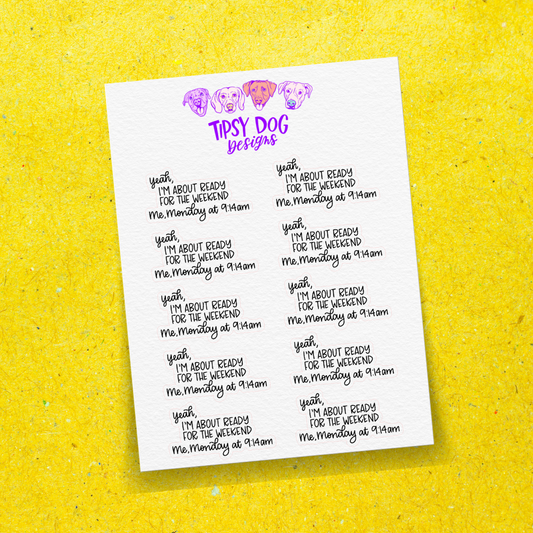 TIPSY DOG
Designs
yeah,
I'M ABOUT READY
FOR THE WEEKEND
Me, Monday at 9:14am
yeah,
I'M ABOUT READY
FOR THE WEEKEND
Me, Monday at 9:14am
yeah,
I'M ABOUT READY
FOR THE WEEKEND
Me, Monday at 9:14am
yeah,
I'M ABOUT READY
FOR THE WEEKEND
Me, Monday at 9:14am
yeah,
I'M ABOUT READY
FOR THE WEEKEND
Me, Monday at 9:14am
yeah,
I'M ABOUT READY
FOR THE WEEKEND
Me, Monday at 9:14am
yeah,
I'M ABOUT READY
FOR THE WEEKEND
Me, Monday at 9:14am
yeah,
I'M ABOUT READY
FOR THE WEEKEND
Me, Monday at 9:14am
yeah,
I'M ABOUT READY
FOR THE WEEKEND
Me, Monday at 9:14am
yeah,
I'M ABOUT READY
FOR THE WEEKEND
Me, Monday at 9:14am